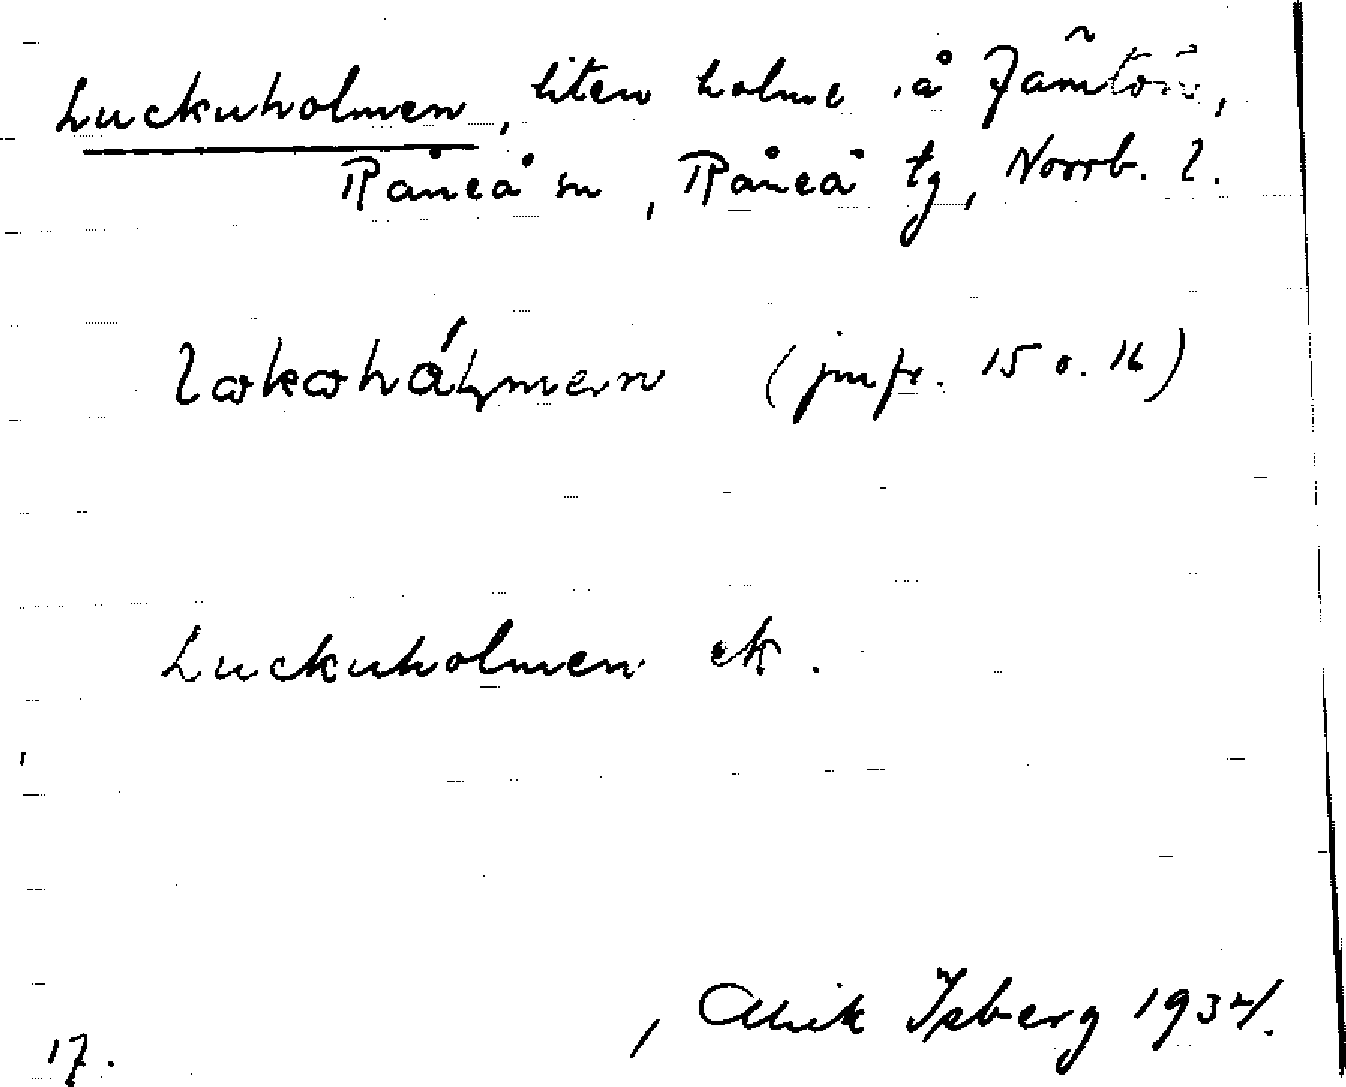 Luckuholmen, liten holme i å Jämtön,
Råneå sn, Råneå tg, Norrb. l.
(jmfr. 15 o. 16)
Luckuholmen ek.
17. Isberg 1934.